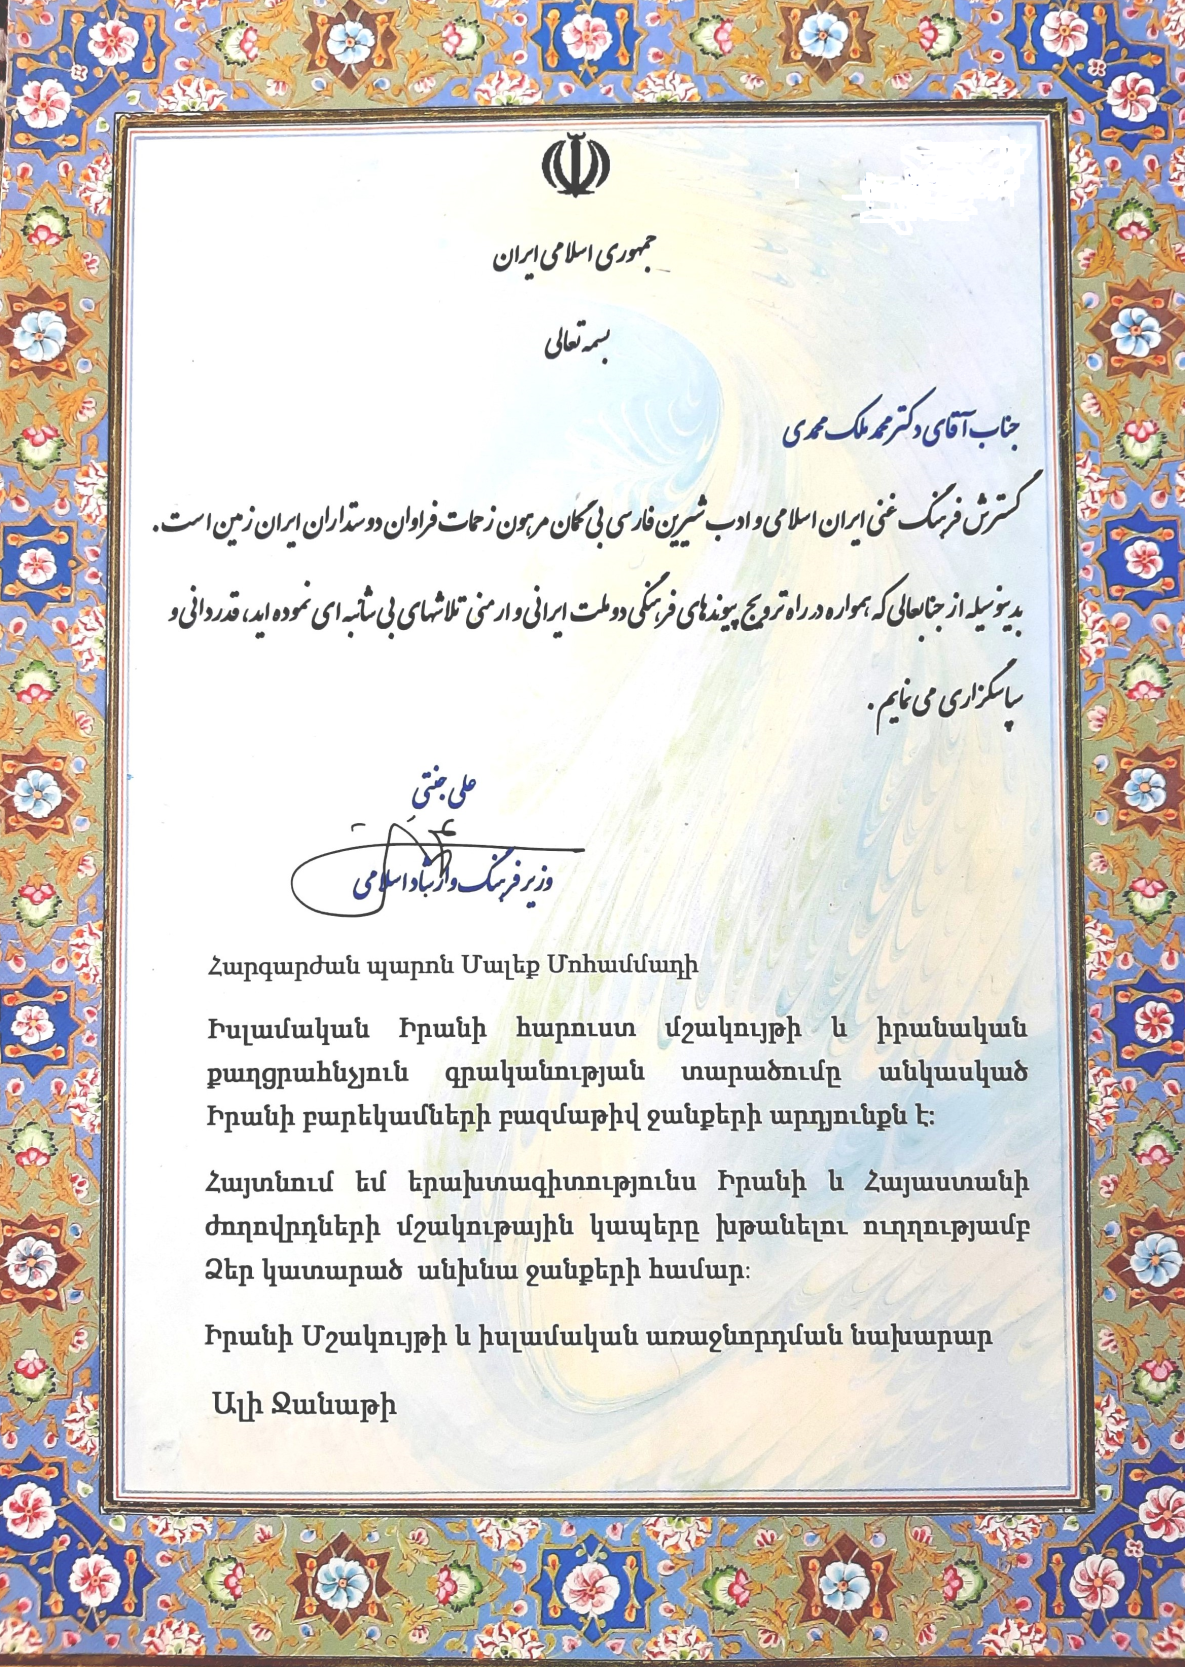 جمهوری اسلامی ایران
بسمه تعالی
جناب آقای دکتر محمد ملک محمدی
گسترش فرهنگ غنی ایران اسلامی و ادب شیرین فارسی بی گمان مرهون زحمات فراوان دوستداران ایران زمین است.
بدینوسیله از جنابعالی که همواره در راه ترویج پیوندهای فرهنگی دو ملت ایرانی و ارمنی تلاشهای بی شائبه ای نموده اید، قدردانی و
سپاسگزاری می نمایم.
علی جنتی
وزیر فرهنگ و ارشاد اسلامی
Հարգարժան պարոն Մալեք Մոհամմադի
Իսլամական Իրանի հարուստ մշակույթի և իրանական
քաղցրահնչյուն գրականության տարածումը անկասկած
Իրանի բարեկամների բազմաթիվ ջանքերի արդյունքն է:
Հայտնում եմ երախտագիտությունս Իրանի և Հայաստանի
ժողովրդների մշակութային կապերը խթանելու ուղղությամբ
Ձեր կատարած անխնա ջանքերի համար:
Իրանի Մշակույթի և իսլամական առաջնորդման նախարար
Ալի Ջանաթի